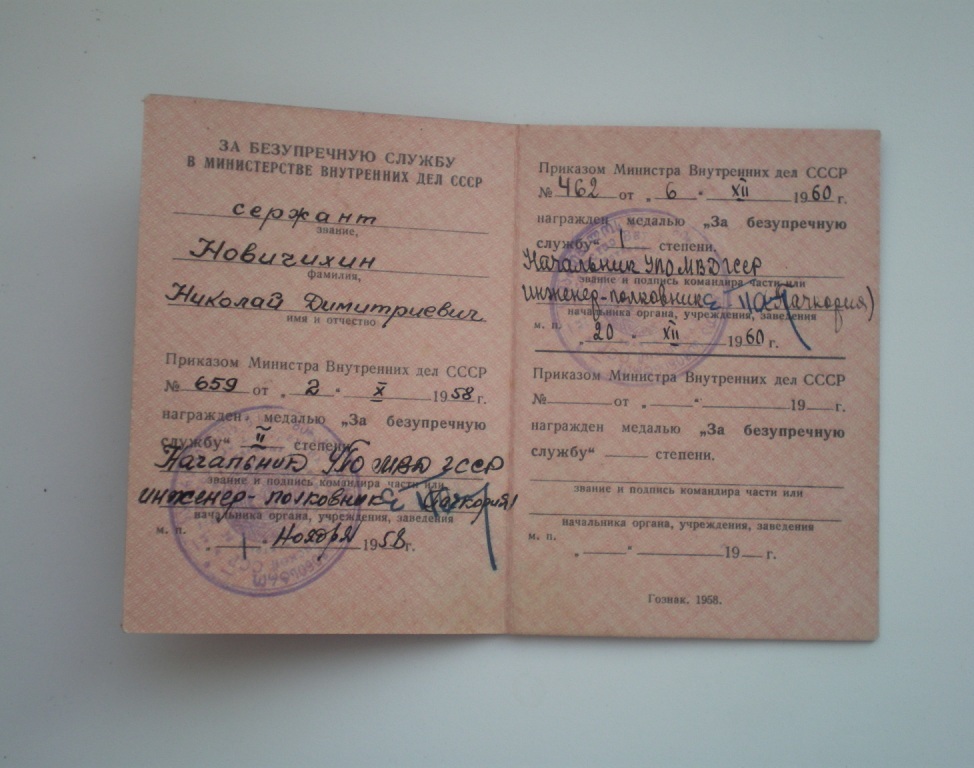 ЗА БЕЗУПРЕЧНУЮ СЛУЖБУ
В МИНИСТЕРСТВЕ ВНУТРЕННИХ ДЕЛ СССР
сержант
звание,
Новичихин
фамилия,
Николай Димитриевич
имя и отчество
Приказом Министра Внутренних дел СССР
№ 659 от „ 2 " X 1958 г.
награжден медалью „За безупречную
службу" II степени.
Начальник УПО МВД ГССР
звание и подпись командира части или
инженер-полковник
начальника органа, учреждения, заведения
м. п.
„ 1 " Ноября 1958 г.
Приказом Министра Внутренних дел СССР
№ 462 от „ 6 " XII 1960 г.
награжден медалью „За безупречную
службу" I степени.
Начальник УПО МВД ГССР
звание и подпись командира части или
инженер-полковник
начальника органа, учреждения, заведения
м. п.
„ 20 " XII 1960 г.
Приказом Министра Внутренних дел СССР
№ от „ " 19 г.
награжден медалью „За безупречную
службу" степени.
звание и подпись командира части или
начальника органа, учреждения, заведения
м. п.
„ " 19 г.
Гознак. 1958.